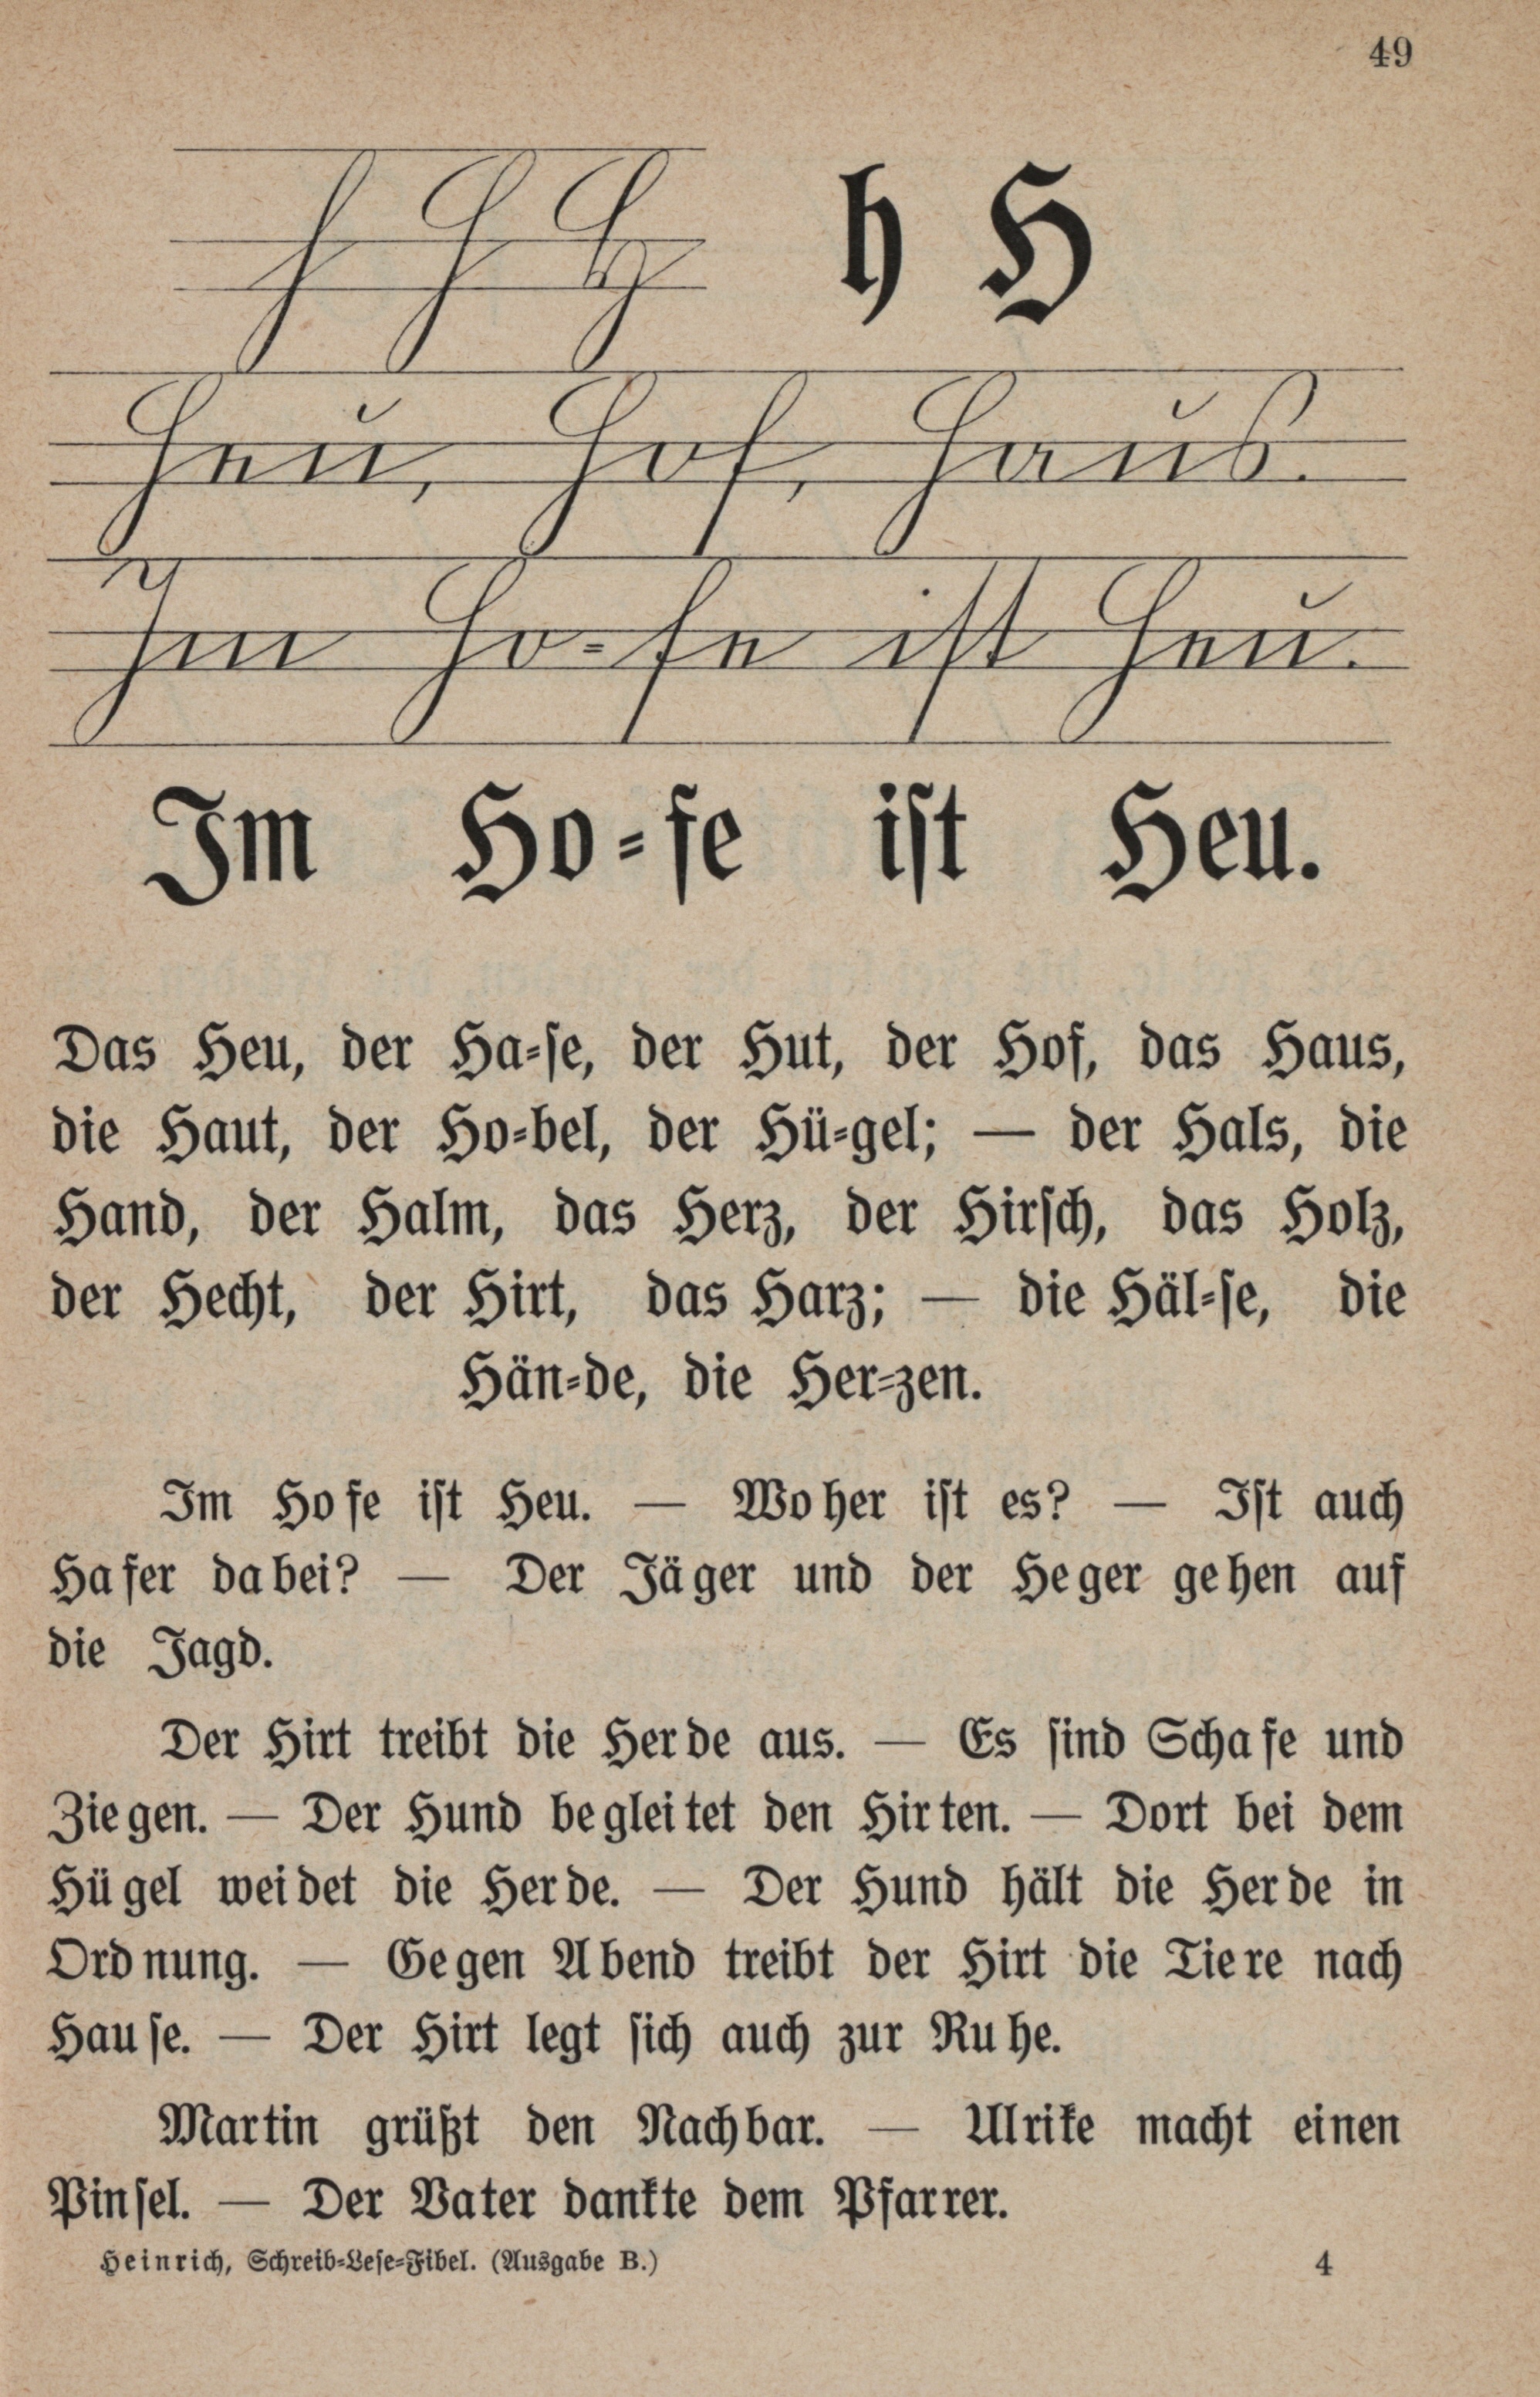 49
h H
Heu, Hof, Haus.
Im Ho-fe ist Heu.
Im Ho-fe ist Heu.
Das Heu, der Ha-se, der Hut, der Hof, das Haus,
die Haut, der Ho-bel, der Hü-gel; — der Hals, die
Hand, der Halm, das Herz, der Hirsch, das Holz,
der Hecht, der Hirt, das Harz; — die Häl-se, die
Hän-de, die Her-zen.
Im Ho fe ist Heu. — Wo her ist es? — Ist auch
Ha fer da bei? — Der Jä ger und der He ger ge hen auf
die Jagd.
Der Hirt treibt die Her de aus. — Es sind Scha fe und
Zie gen. — Der Hund be glei tet den Hir ten. — Dort bei dem
Hü gel wei det die Her de. — Der Hund hält die Her de in
Ord nung. — Ge gen A bend treibt der Hirt die Tie re nach
Hau se. — Der Hirt legt sich auch zur Ru he.
Mar tin grüßt den Nach bar. — Ulrike macht ei nen
Pin sel. — Der Va ter dankte dem Pfar rer.
Heinrich, Schreib-Lese-Fibel. (Ausgabe B.) 4